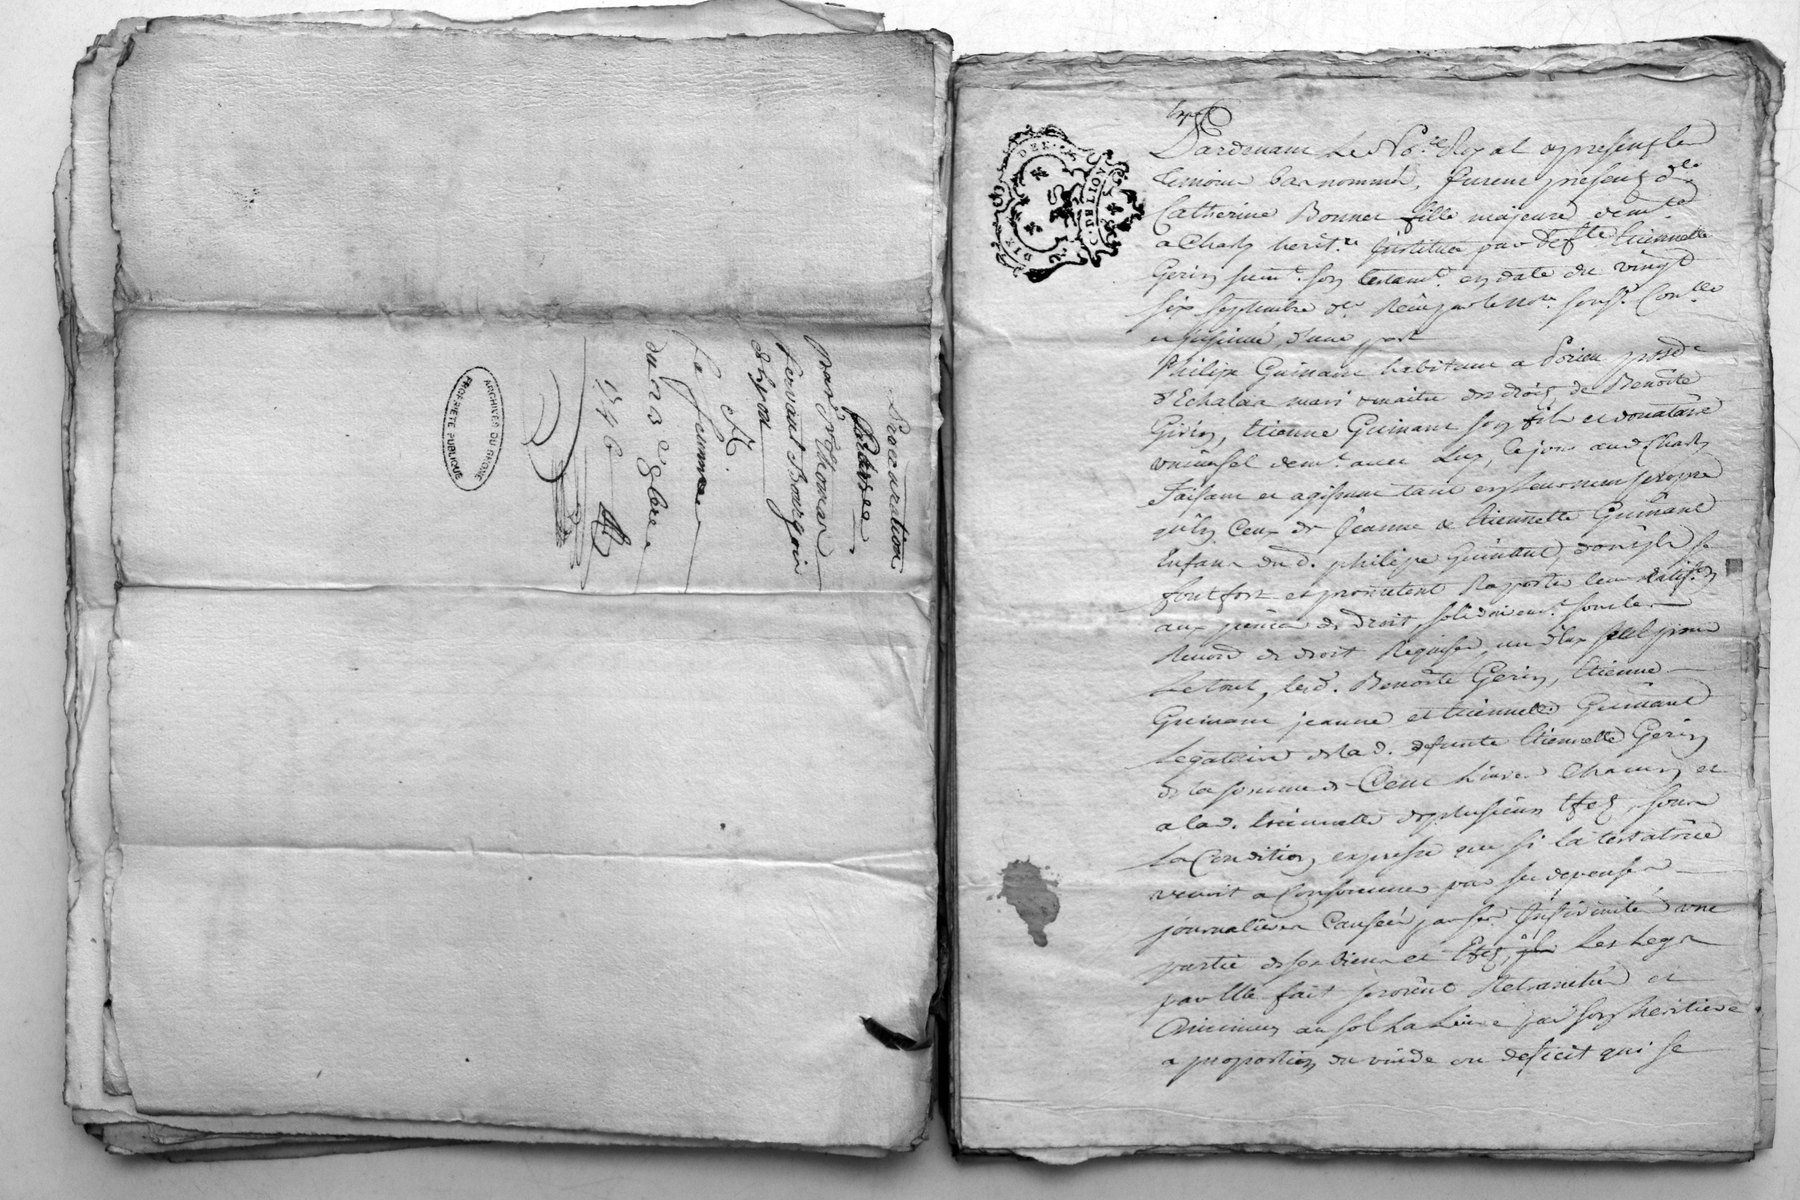 Procuration
passée
par Sr Thomas
Fervant Bourgoin
de Lyon
&
sa femme
du 23 9bre
1746
ARCHIVES DU RHONE
PROPRIÉTÉ PUBLIQUE
DIX DEN.
G. DE LION
Pardevant le No.re Royal & presents les
temoins bas nommés, furent presents dlle
Catherine Bonnet fille majeure demte
a Charly herit.re instituée par deffte Etiennette
Gerin suivt. son testamt. en date du vingt
six septembre der Receu par le Nore. souss. Conllé
et insinué d'une part
Philipe Guinant habitant a parsse
d'Echalas mari & maitre des droits de Benoîte
Gerin, Etienne Guinant son fils et donataire
universel demt. avec luy, ce jour aud. Charly
faisant et agissant tant en leur nom propre
qu'en ceux de Jeanne & Etiennette Guinant
Enfans dud. philipe Guinant desquels ils se
font fort et promettent Rapporter leur Ratif.on
aux peines de droit, solidairemt. sous les
Renon. de droit Requises, un d'eux seul pour
le tout, lesd. Benoîte Gerin, Etienne
Guinant jeanne et Etiennette Guinant
Legataires de la d. defunte Etiennette Gerin
de la somme de Cent livres Chacun et
a la d. Etiennette de plusieurs Effets, sous
la Condition expresse que si la testatrice
venoit a Consommer par ses depenses
journalieres Causées par ses Infirmités une
partie de ses biens et Effets, les Legs
par Elle fait seroient Retranchés et
Diminués au sol la Livre par son heritiere
a proportion du vuide ou deficit qui se